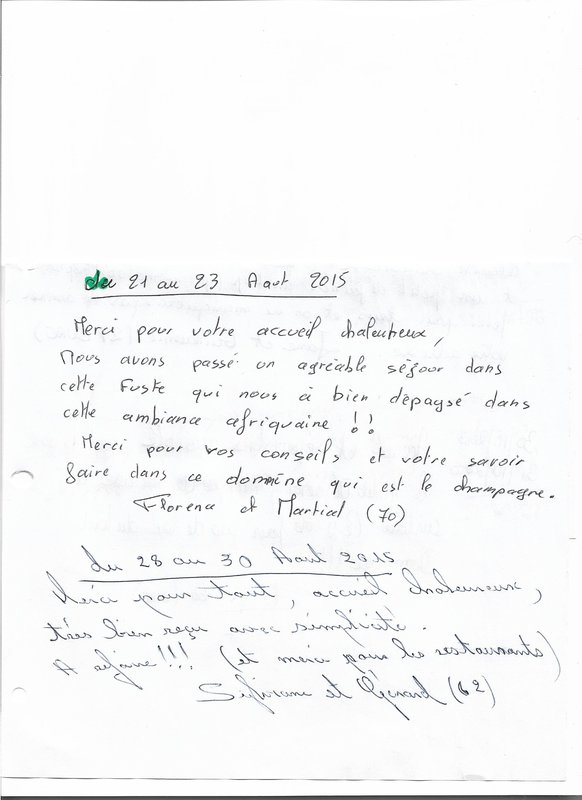 du 21 au 23 Août 2015
Merci pour votre accueil chaleureux,
Nous avons passé un agréable séjour dans
cette Fuste qui nous à bien dépaysé dans
cette ambiance afriquaine !!
Merci pour vos conseils et votre savoir
faire dans ce domaine qui est le champagne.
Florence et Martial (70)
du 28 au 30 Août 2015
Merci pour tout, accueil chaleureux,
très bien reçu avec simplicité.
A refaire !!! (et merci pour les restaurants)
et Gérard (62)